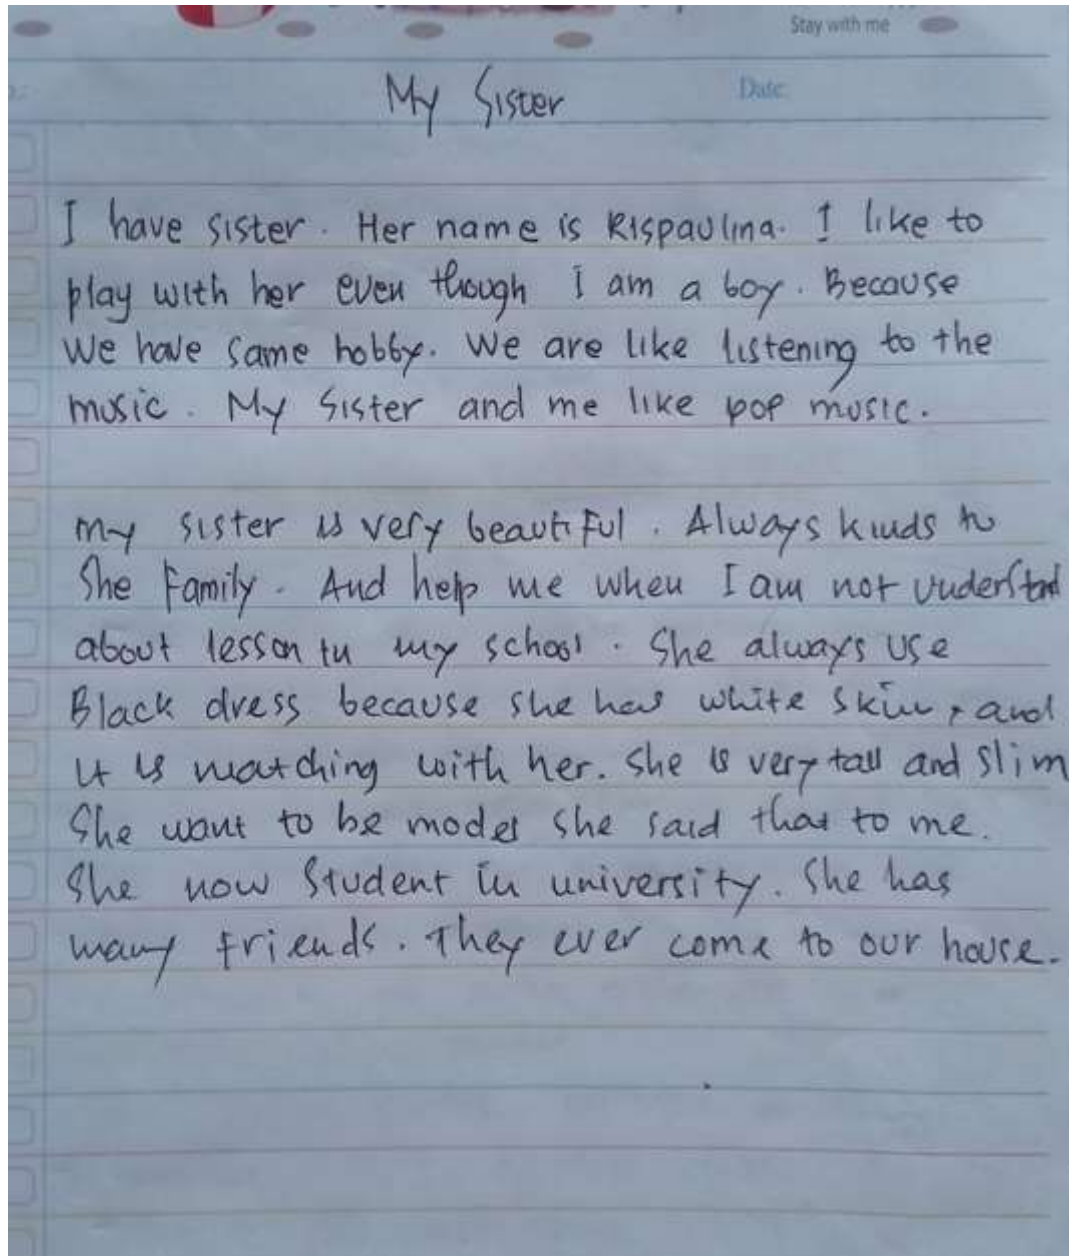 Stay with me
My Sister
Date:
I have sister. Her name is Rispaulina. I like to
play with her even though I am a boy. Because
We have same hobby. We are like listening to the
music. My Sister and me like pop music.
my sister is very beautiful. Always kinds to
She Family. And help me when I am not understand
about lesson in my school. She always use
Black dress because she has white skin, and
it is matching with her. She is very tall and slim
She want to be model she said that to me.
She now Student in university. She has
many friends. They ever come to our house.